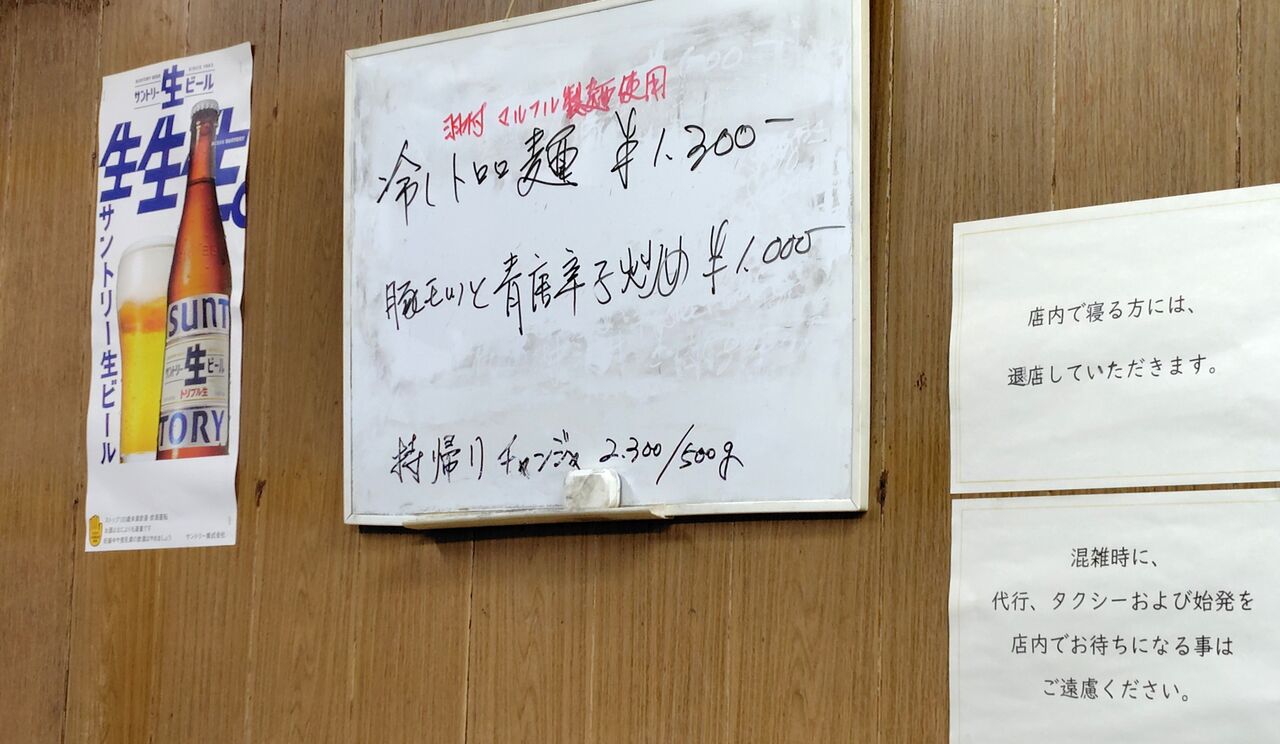 サントリー生ビール
生生生。
サントリー生ビール
SUNTORY
サントリー生ビール
トリプル生
サントリー株式会社
羽村 マルフル製麺使用
冷しトロロ麺 ¥1.300-
豚モツと青唐辛子炒め ¥1.000-
持帰りチャンジャ 2.300/500g
店内で寝る方には、
退店していただきます。
混雑時に、
代行、タクシーおよび始発を
店内でお待ちになる事は
ご遠慮ください。